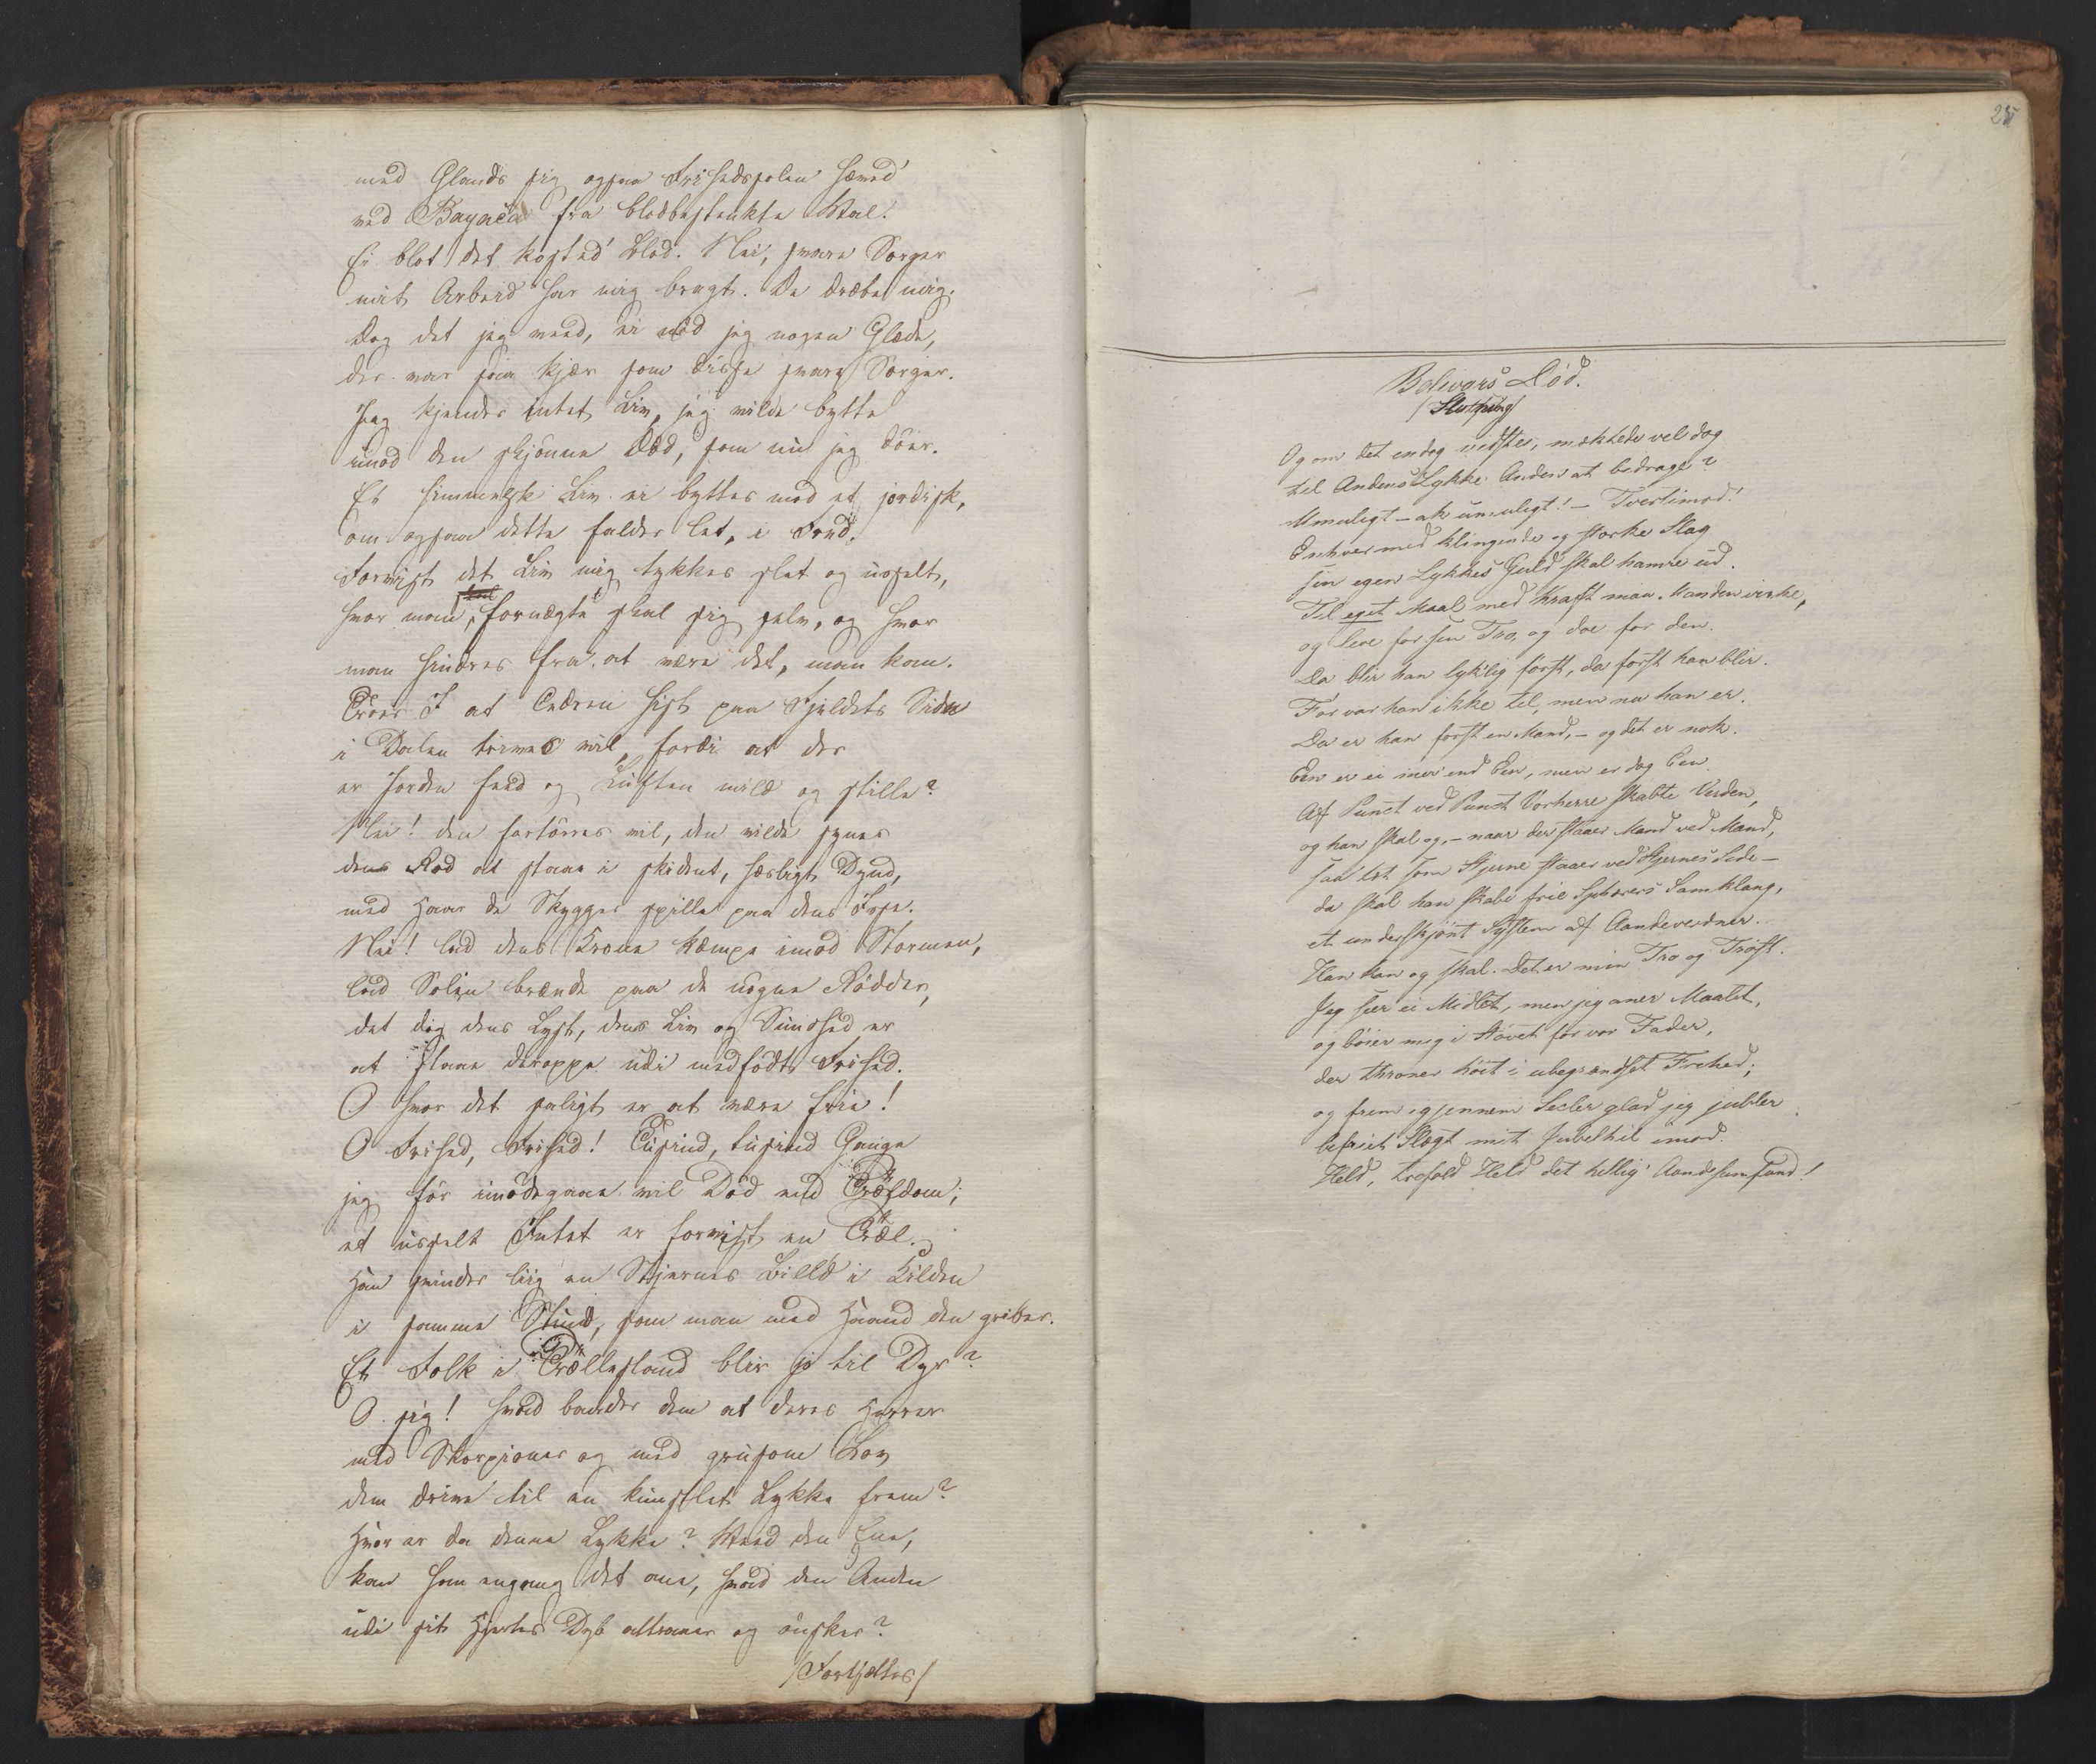 med Glands sig ogsaa Frihedssolen hæved'
ved Bayaca fra blodbestenkte Val.
Ei blot det kosted' Blod. Nei, svare Sorger
mit Arbeid har mig bragt. De dræbe mig.
Dog det jeg veed, ei nød jeg nogen Glæde,
der var saa kjær som disse svare Sorger.
Jeg kjender intet Liv, jeg vilde bytte
imod den skjønne Død, som nu jeg døer.
Et himmelsk Liv ei byttes mod et jordisk,
om ogsaa dette falder let, i Fred.
Forvist det Liv mig tykkes slet og usselt,
hvor man fornægte skal sig selv, og hvor
man hindres fra at være det, man kan.
Troer I at Cedren hist paa Fjeldets Side
i Dalen trives vil, fordi at der
er Jorden feed og Luften mild og stille?
Nei! den fortørres vil, den vilde synes
dens Rod at staae i skident, hæsligt Dynd,
med Haar de Skygger spille paa dens Isse.
Nei! lad dens Krone kæmpe imod Stormen,
lad Solen brænde paa de nøgne Rødder,
det dog dens Lyst, dens Liv og Sundhed er
at staae deroppe udi medfødt Frihed.
O hvor det saligt er at være frie!
O Frihed, Frihed! Tusind, tusind Gange
jeg før imødegaae vil Død end Trældom;
et usselt Intet er forvist en Træl.
Han svinder liig en Stjernes Billed i Kilden
i samme Stund, som man med Haand den griber.
Et Folk i Trællestand blir jo til Dyr?
O sig! hvad baader dem at deres Herrer
med Skorpioner og med grusom Lov
dem drive til en kunstlet Lykke frem?
Hvor er da denne Lykke? Veed den Ene,
kan han engang det ane, hvad den Anden
udi sit Hjertes Dyb attraaer og ønsker?
/Fortsættes/
25
Bolivars Død.
/Slutning/
Og om det endog vidstes, mægtede vel dog
til Andens Lykke Anden at bedrage?
Umuligt – ak umuligt! – Tvertimod!
Enhver med klingende og stærke Slag
sin egen Lykkes Guld skal hamre ud.
Til eget Maal med Kraft maa Manden virke,
og leve for sin Tro, og døe for den.
Da blir han lyklig først, da først han blir.
Før var han ikke til, men nu han er.
Da er han først en Mand, – og det er nok.
Een er ei mer end Een, men er dog Een.
Af Punct ved Punct Vorherre skabte Verden,
og han skal og, – naar der staaer Mand ved Mand,
saa tæt som Stjerne staaer ved Stjernes Side –
da skal han skabe frie Sphærers Samklang,
et underskjønt System af Aandeverdner.
Han kan og skal. Det er min Tro og Trøst.
Jeg seer ei Midlet, men jeg aner Maalet,
og bøier mig i Støvet for vor Fader,
der throner høit i ubegrændset Frihed;
og frem igjennem Secler glad jeg jubler
befriet Slægt mit Jubelhil imod.
Held, trefold Held det hellig' Aandesamfund!